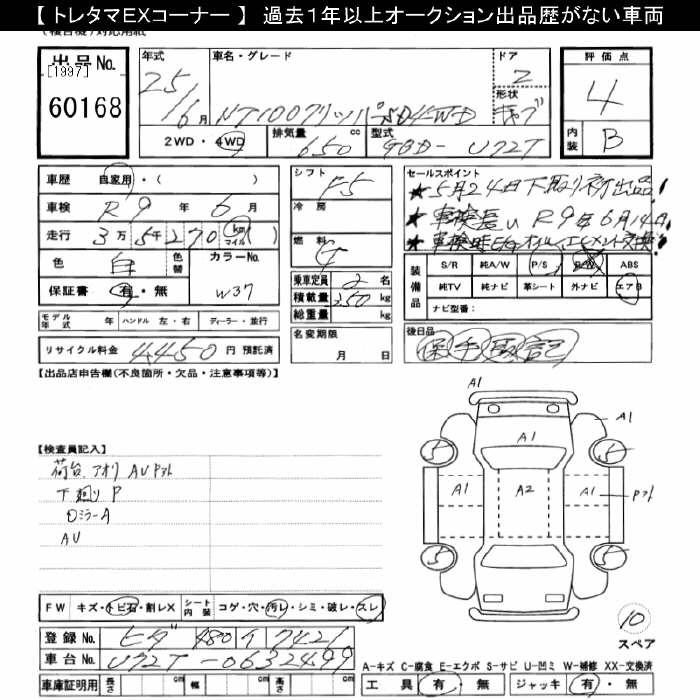 【トレタマEXコーナー】 過去1年以上オークション出品歴がない車両
出品No.
[1997]
60168
年式
25/6月
車名・グレード
NT100クリッパー SD4WD
ドア
2
形状
キャブ
評価点
4
内装
B
2WD・4WD
排気量
650
cc
型式
GBD-U72T
車歴
自家用・( )
車検
R9年6月
走行
3万5千270
km
マイル
色
白
色替
カラーNo.
W37
保証書
有・無
モデル年式
年
ハンドル
左・右
ディーラー・並行
リサイクル料金
4450円 預託済
シフト
F5
冷房
燃料
G
乗車定員
2名
積載量
350kg
総重量
kg
名変期限
月 日
セールスポイント
★5月24日下取り初出品!
★車検長い R9年6月14日!
★車検時E/Gオイル、エレメント交換!
装備品
S/R
純A/W
P/S
P/W
ABS
純TV
純ナビ
革シート
外ナビ
エアB
ナビ型番:
後日品
保 手 取 記
【出品店申告欄(不良箇所・欠品・注意事項等)】
【検査員記入】
荷台、アオリ AUPサト
下廻りP
ロミラーA
AU
A1
A1
A1
5
5
A1
A2
A1
Pサト
5
5
10
スペア
FW
キズ・トビ石・割レX
シート内装
コゲ・穴・汚レ・シミ・破レ・スレ
登録No.
ヒダ 480 イ 7421
車台No.
U72T-0632499
車庫証明用
長さ
cm
幅
cm
高さ
cm
A-キズ C-腐食 E-エクボ S-サビ U-凹ミ W-補修 XX-交換済
工具
有・無
ジャッキ
有・無